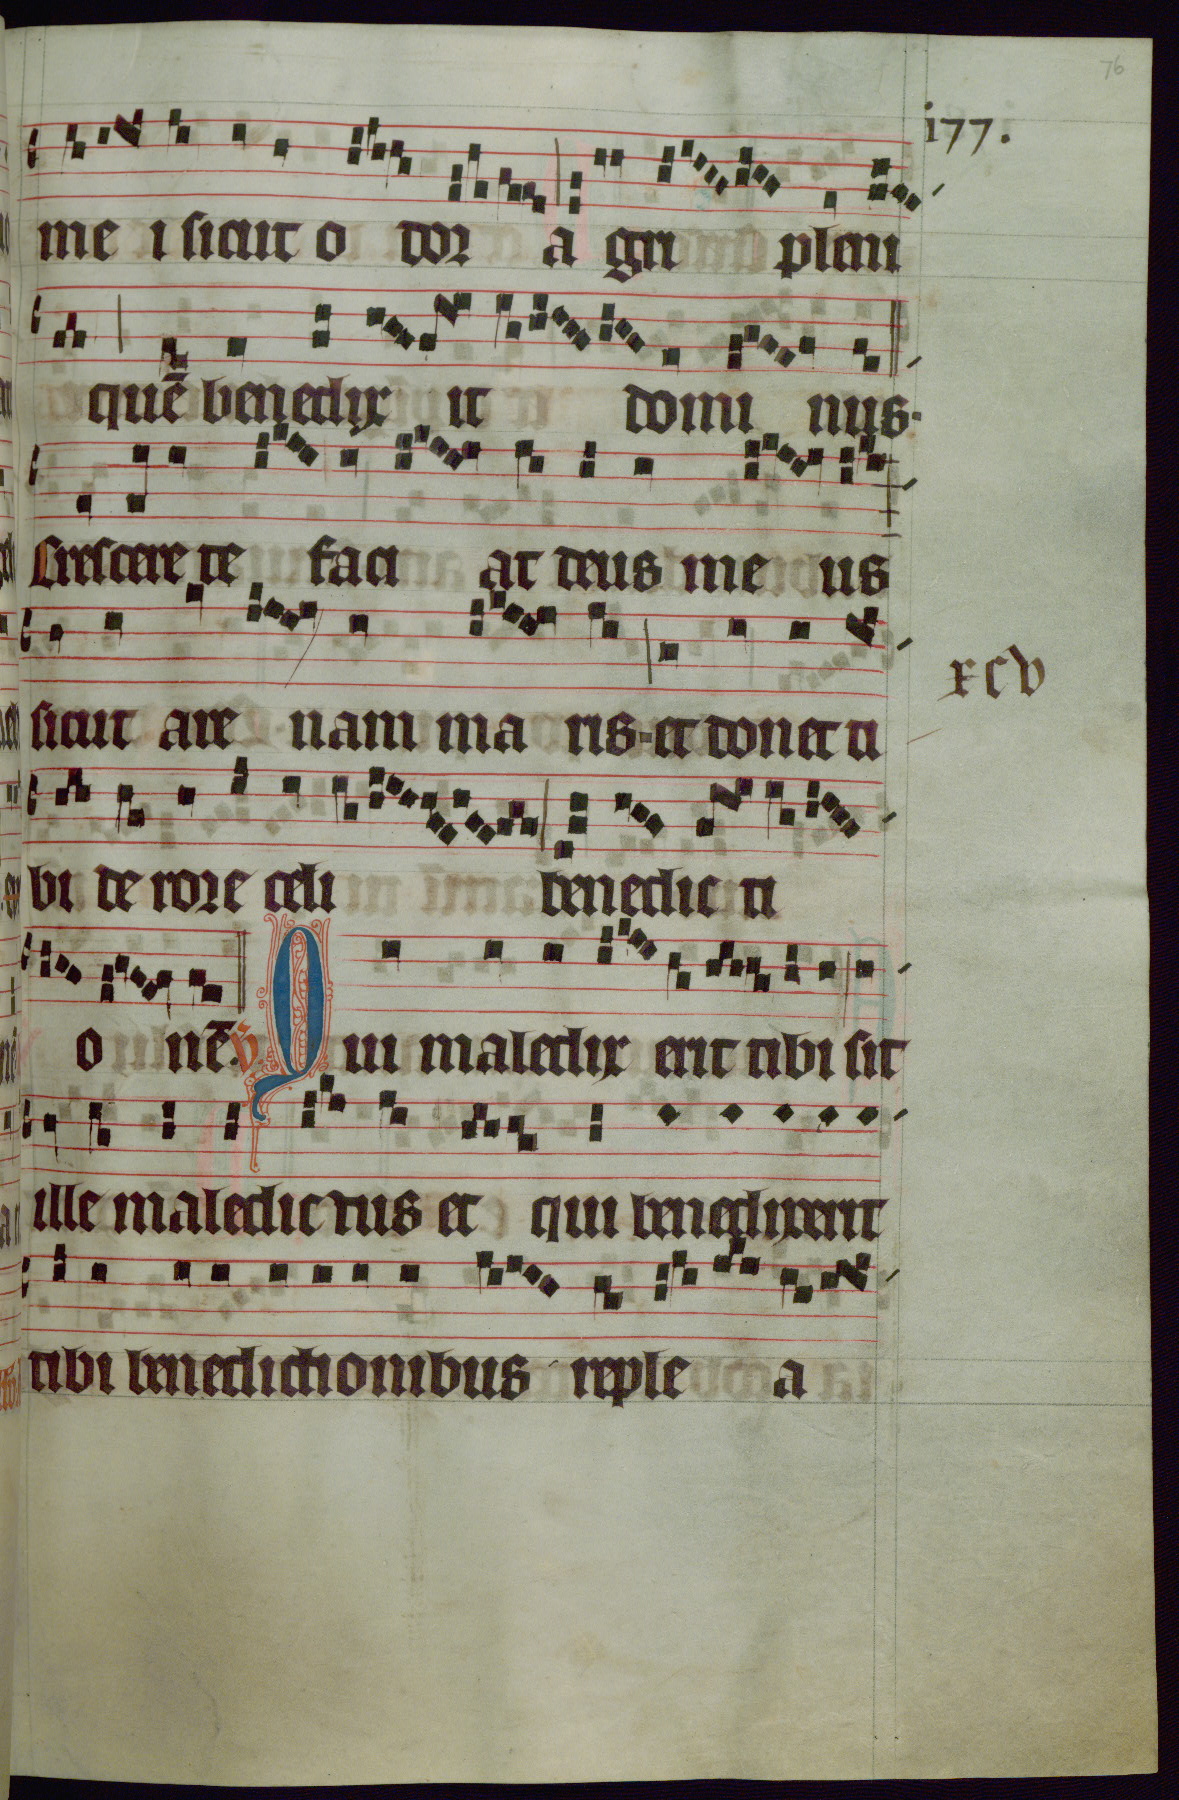 76
177.
me i sicut o dor a gri pleni
quē benedix it domi nus.
Crescere te faci at deus me us
sicut are nam ma ris-et donet ti
xcv
bi de rore celi benedic ti
o nē. V Qui maledix erit tibi sit
ille maledictus et qui benedixerit
tibi benedictionibus reple a